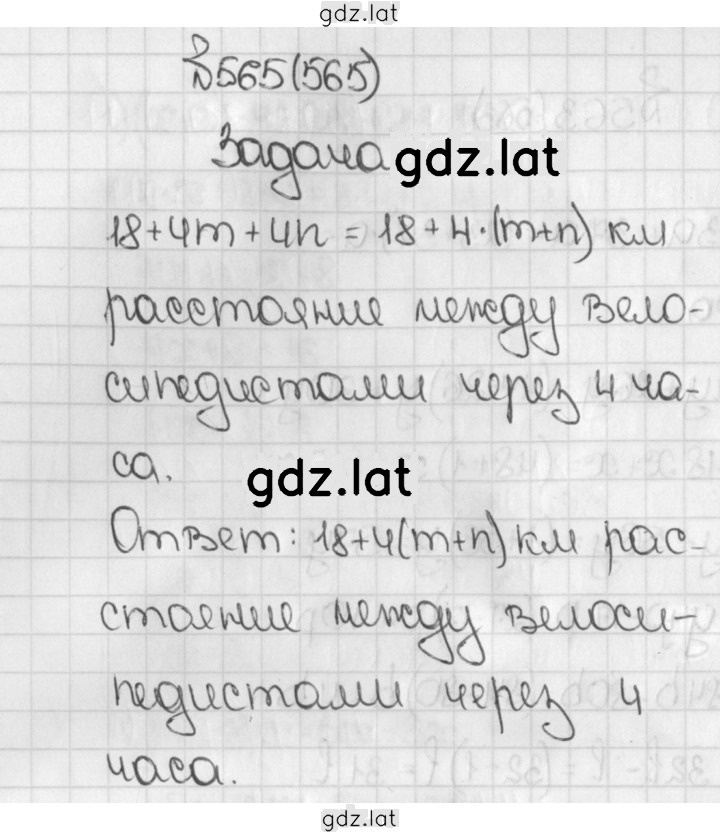 gdz.lat
№565(565)
Задача gdz.lat
18+4m+4n = 18+4·(m+n) км
расстояние между вело-
сипедистами через 4 ча-
са. gdz.lat
Ответ: 18+4(m+n) км рас-
стояние между велоси-
педистами через 4
часа.
gdz.lat